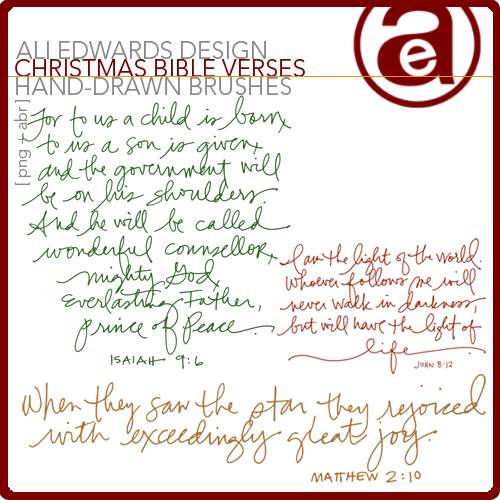 ae
ALI EDWARDS DESIGN
CHRISTMAS BIBLE VERSES
HAND-DRAWN BRUSHES
[ png + abr ]
For to us a child is born,
to us a son is given,
and the government will
be on his shoulders.
And he will be called
wonderful counsellor,
mighty God,
Everlasting Father,
prince of Peace.
ISAIAH 9:6
I am the light of the world.
Whoever follows me will
never walk in darkness,
but will have the light of
life.
JOHN 8:12
When they saw the star they rejoiced
with exceedingly great joy.
MATTHEW 2:10